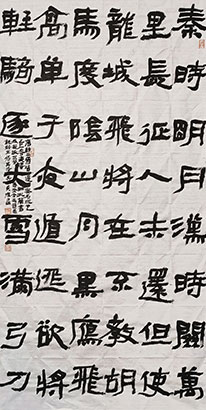 秦時明月漢時關萬
里長征人未還但使
龍城飛將在不教胡
馬度陰山月黑鴈飛
高單于夜遁逃欲將
輕騎逐大雪滿弓刀